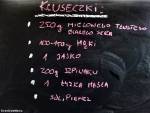 KLUSECZKI:
250g MIELONEGO TŁUSTEGO
BIAŁEGO SERA
100-150g MĄKI
1 JAJKO
200g SZPINAKU
1 ŁYŻKA MASŁA
SÓL, PIEPRZ